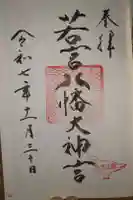 奉拝
若宮八幡大神宮
令和七年十一月二十日